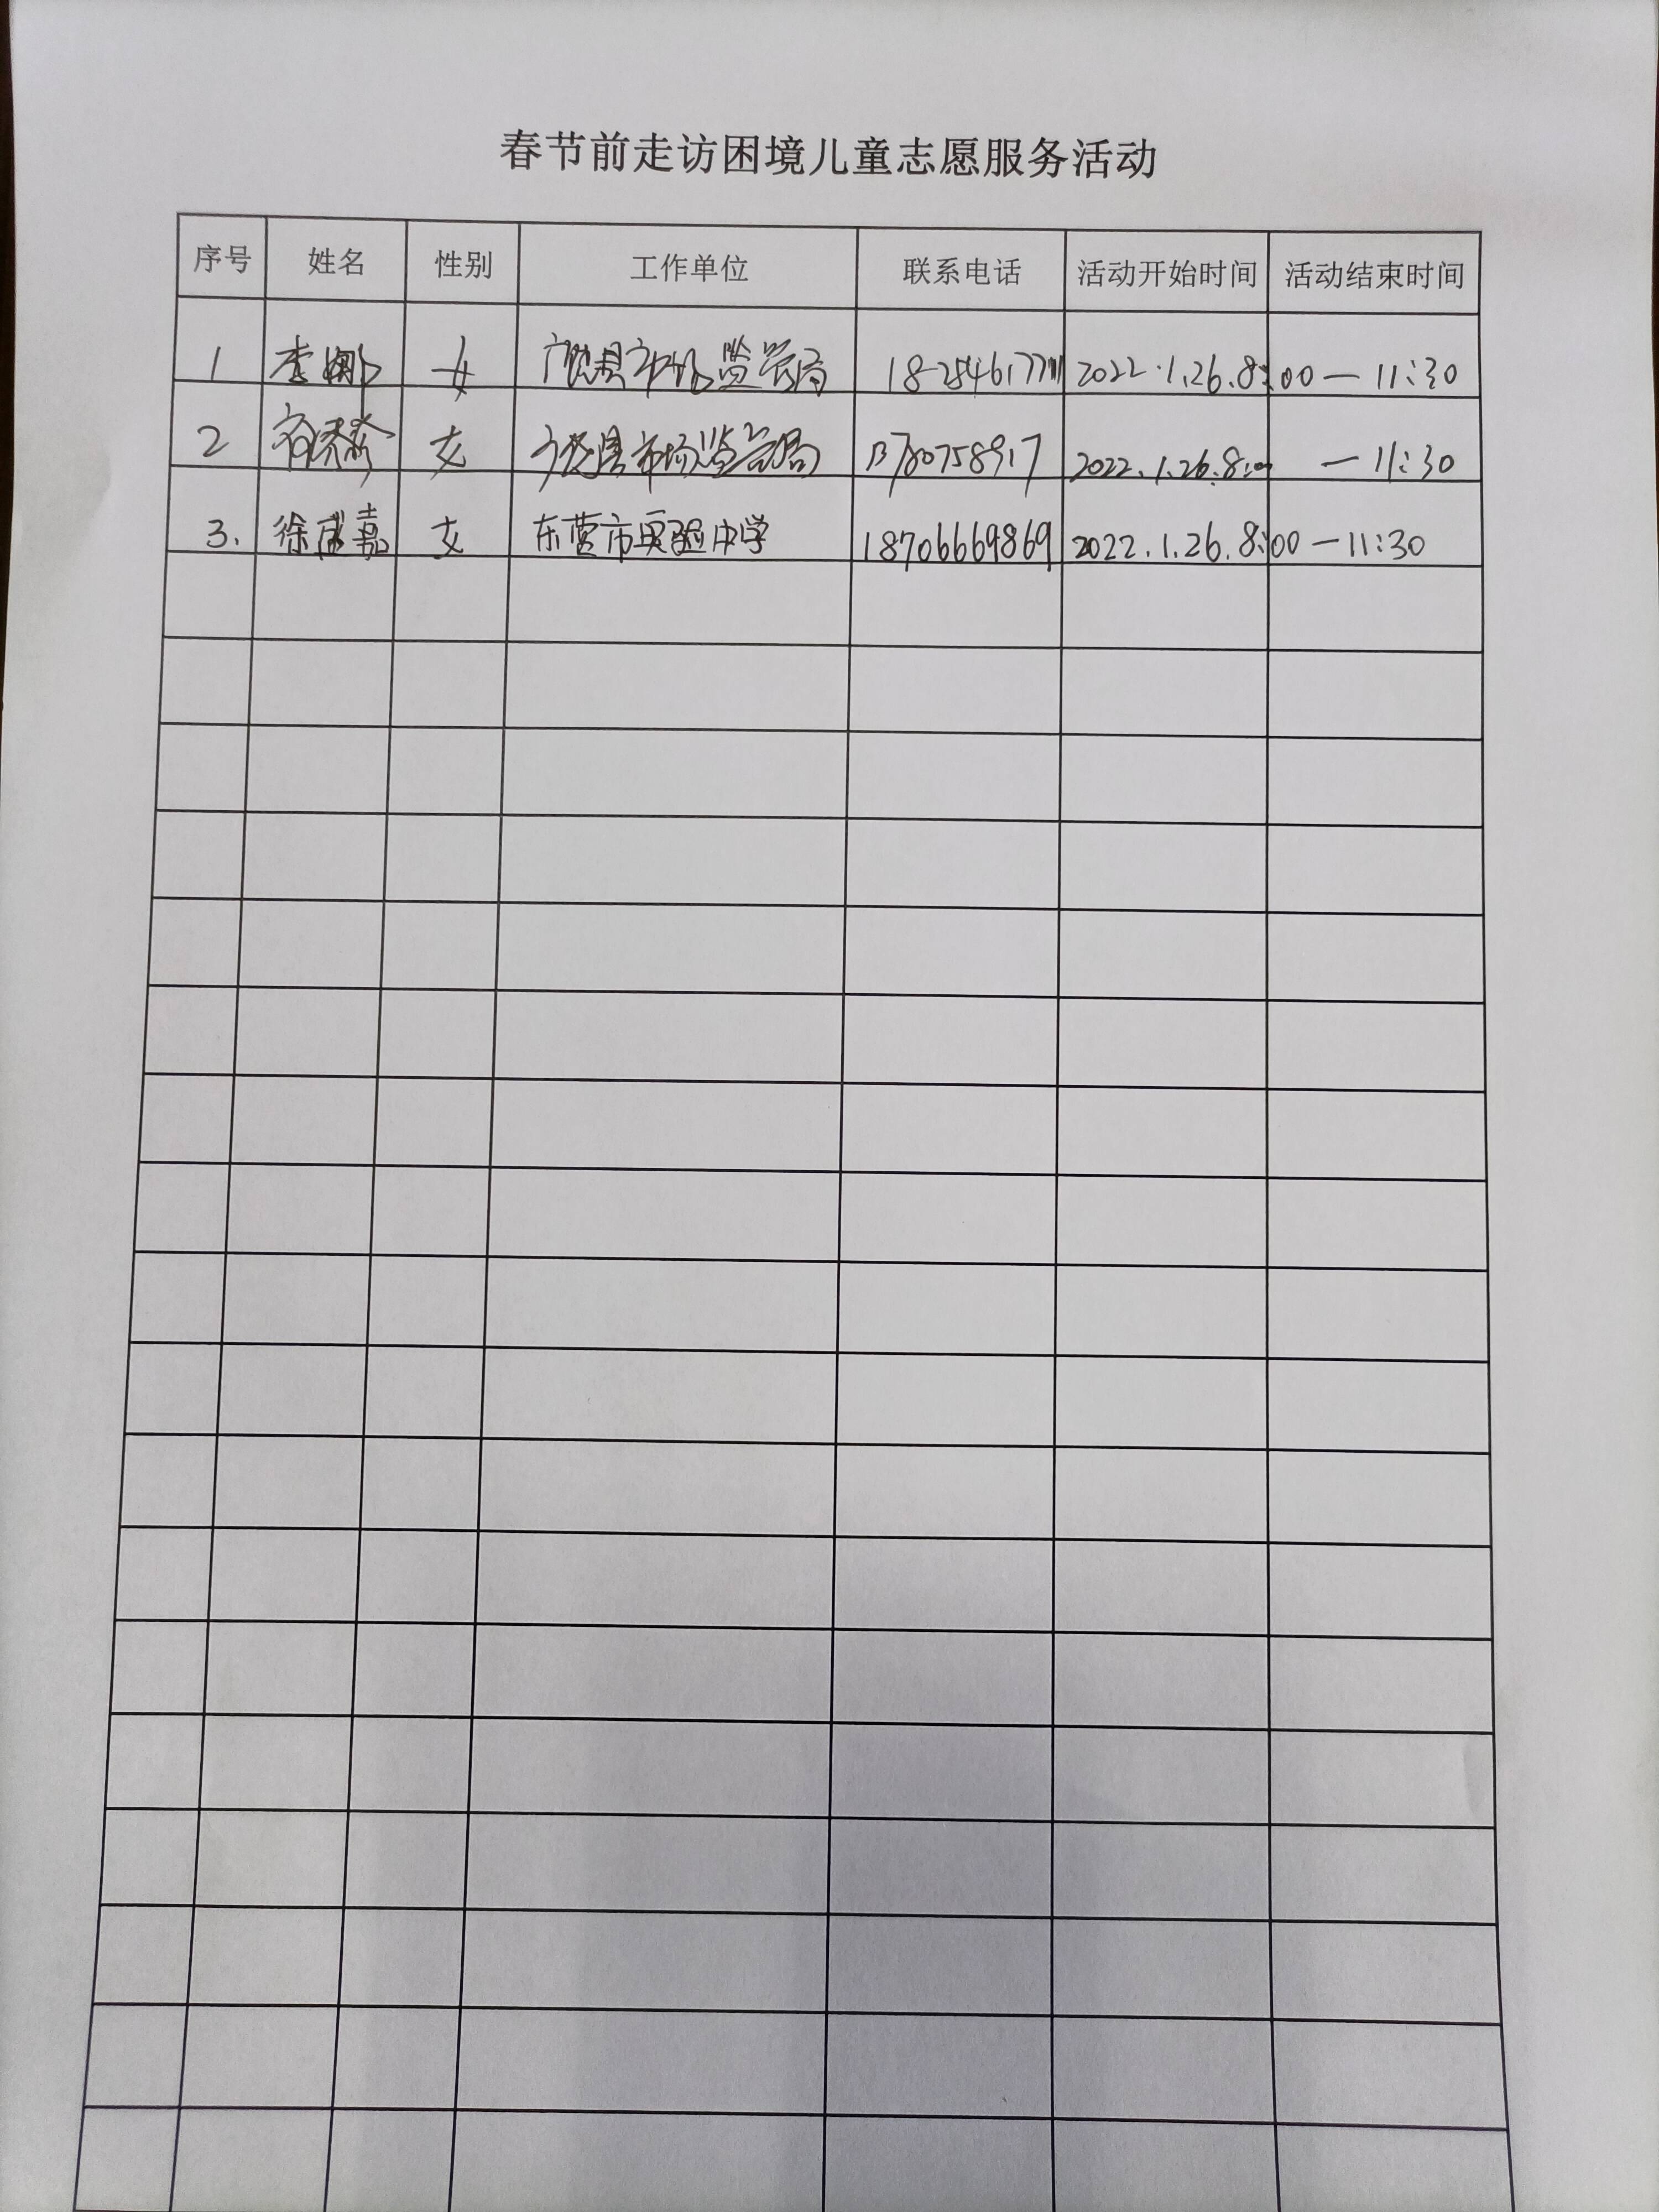 春节前走访困境儿童志愿服务活动
序号 姓名 性别 工作单位 联系电话 活动开始时间 活动结束时间
1 李娜 女 广饶县市场监管局 2022.1.26.8:00—11:30
2 女 广饶县市场监管局 2022.1.26.8:00 —11:30
3. 徐嘉 女 东营市实验中学 18706669869 2022.1.26.8:00—11:30